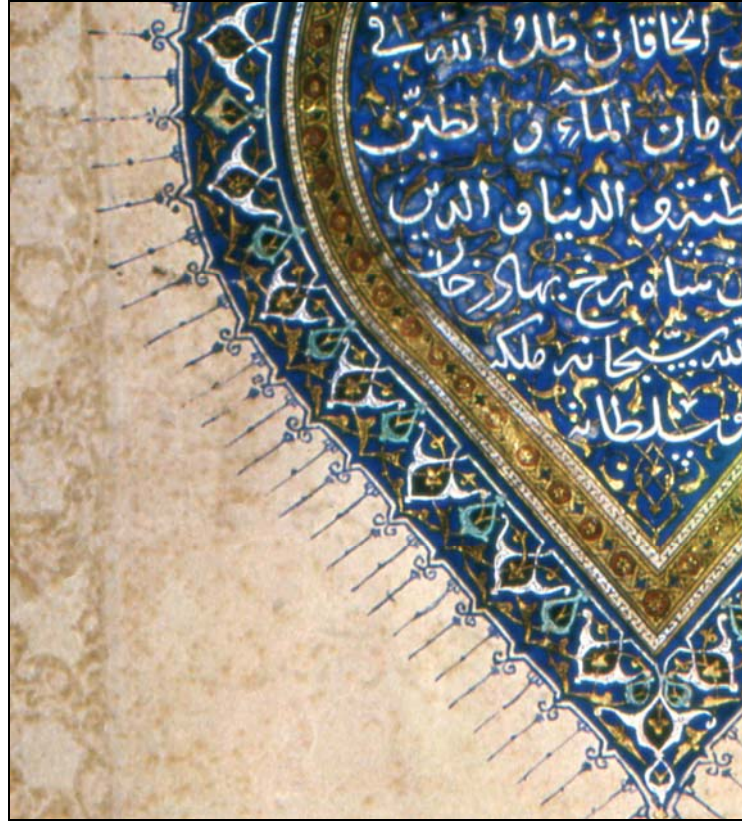 الخاقان ظل الله في
رمان المآء و الطين
طنة و الدنيا و الدين
شاه رخ بهادر خان
لله سبحانه ملكه
وسلطانه